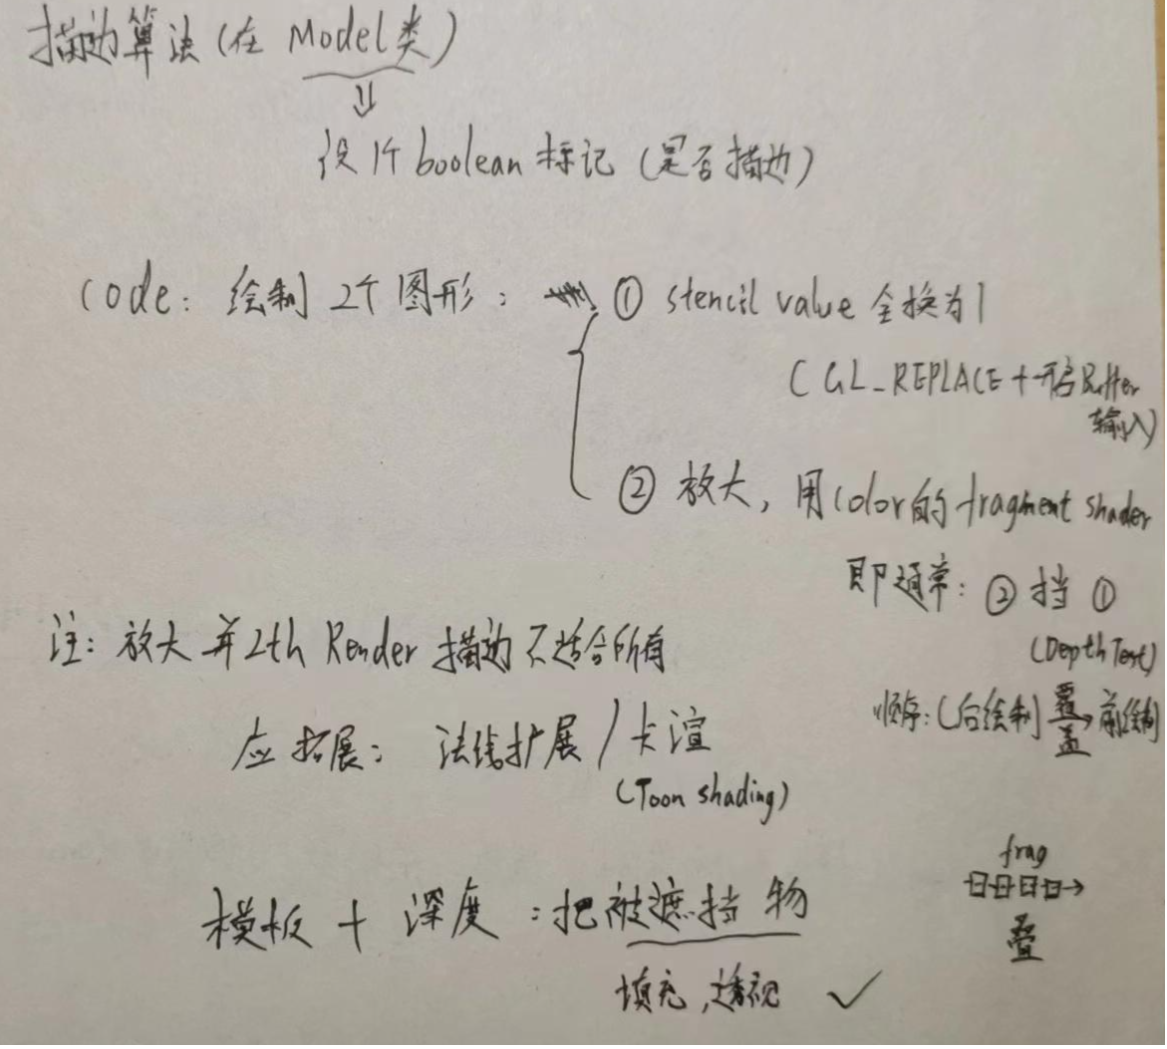 描边算法(在 Model类)
⇓
设1个boolean 标记 (是否描边)
code: 绘制 2个图形: ① stencil value 全换为1
(GL_REPLACE + 开启Buffer
输入)
② 放大, 用color的 fragment shader
即通常: ② 挡 ①
(Depth Test)
注: 放大并2th Render 描边不适合所有
顺序: (后绘制 覆盖→ 前绘制
应拓展: 法线扩展 / 卡渲
(Toon shading)
frag
模板 + 深度: 把被遮挡物
叠
填充, 透视 ✓